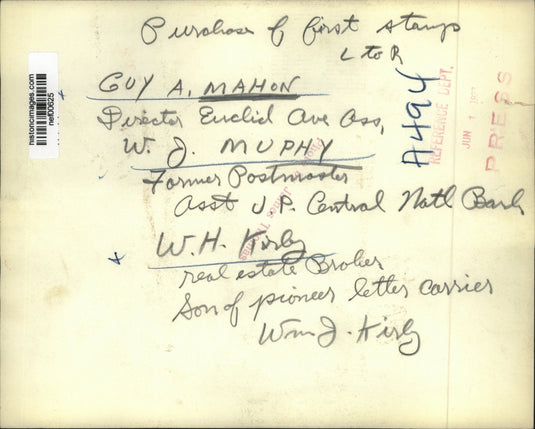 Purchase of first stamps
L to R
GUY A. MAHON
Director Euclid Ave Ass,
W. J. MUPHY
Former Postmaster
Asst V.P. Central Natl Bank
W.H. Kirby
real estate Broker
Son of pioneer letter carrier
Wm J. Kirby
A494
REFERENCE DEPT.
JUN 1
PRESS
historicimages.com
nef00625